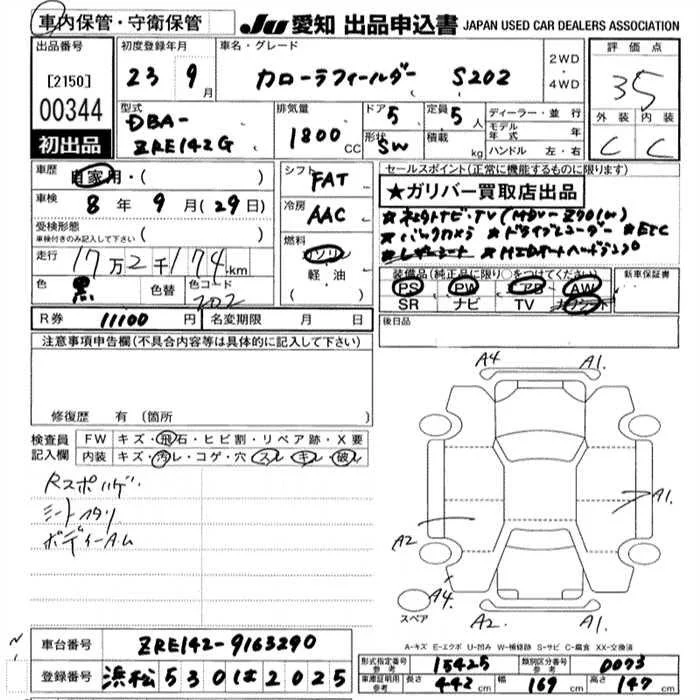 車内保管・守衛保管
JU 愛知 出品申込書 JAPAN USED CAR DEALERS ASSOCIATION
出品番号
[2150]
00344
初出品
初度登録年月
23 9月
車名・グレード
カローラフィールダー S202
2WD
・
4WD
評価点
35
外装 内装
C C
型式
DBA-
ZRE142G
排気量
1800 CC
ドア 5
形状 SW
定員 5人
積載 kg
ディーラー・並行
モデル年式 年
ハンドル 左・右
車歴 自家用・( )
車検 8年 9月(29日)
受検形態
車検付きのみ記入して下さい ( )
走行 17万2千174km
色 黒 色替 色コード 202
シフト FAT
冷房 AAC
燃料
ガソリン
軽・油
( )
セールスポイント(正常に機能するものに限ります)
★ガリバー買取店出品
★バックカメラ ★ドライブレコーダー ★ETC
装備品(純正品に限り○をつけてください)
PS PW AB AW
SR ナビ TV カワシート
新車保証書
後日品
R券 11100円 名変期限 月 日
注意事項申告欄(不具合内容等は具体的に記入して下さい)
修復歴 有(箇所
検査員記入欄
FW キズ・飛石・ヒビ割・リペア跡・X要
内装 キズ・汚レ・コゲ・穴 スレ キレ 破レ
Rスポハゲ
シートスタリ
ボディーA.M
A4 A1
A2 A1
A4 A2 A1
スペア
A-キズ E-エクボ U-凹み W-補修跡 S-サビ C-腐食 XX-交換済
車台番号 ZRE142-9163290
登録番号 浜松 530 は 2025
型式指定番号 参考 15425 類別区分番号 参考 0073
車庫証明用 参考 長さ 442cm 幅 169cm 高さ 147cm